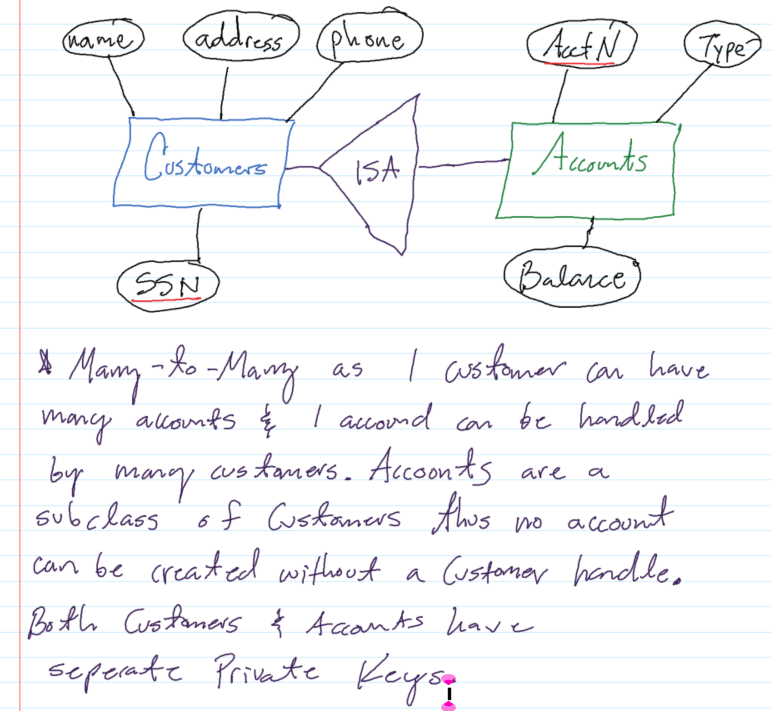 name address phone AcctN Type
Customers ISA Accounts
SSN Balance
* Many-to-Many as 1 customer can have
many accounts & 1 accound can be handled
by many customers. Accounts are a
subclass of Customers thus no account
can be created without a Customer handle.
Both Customers & Accounts have
seperate Private Keys.